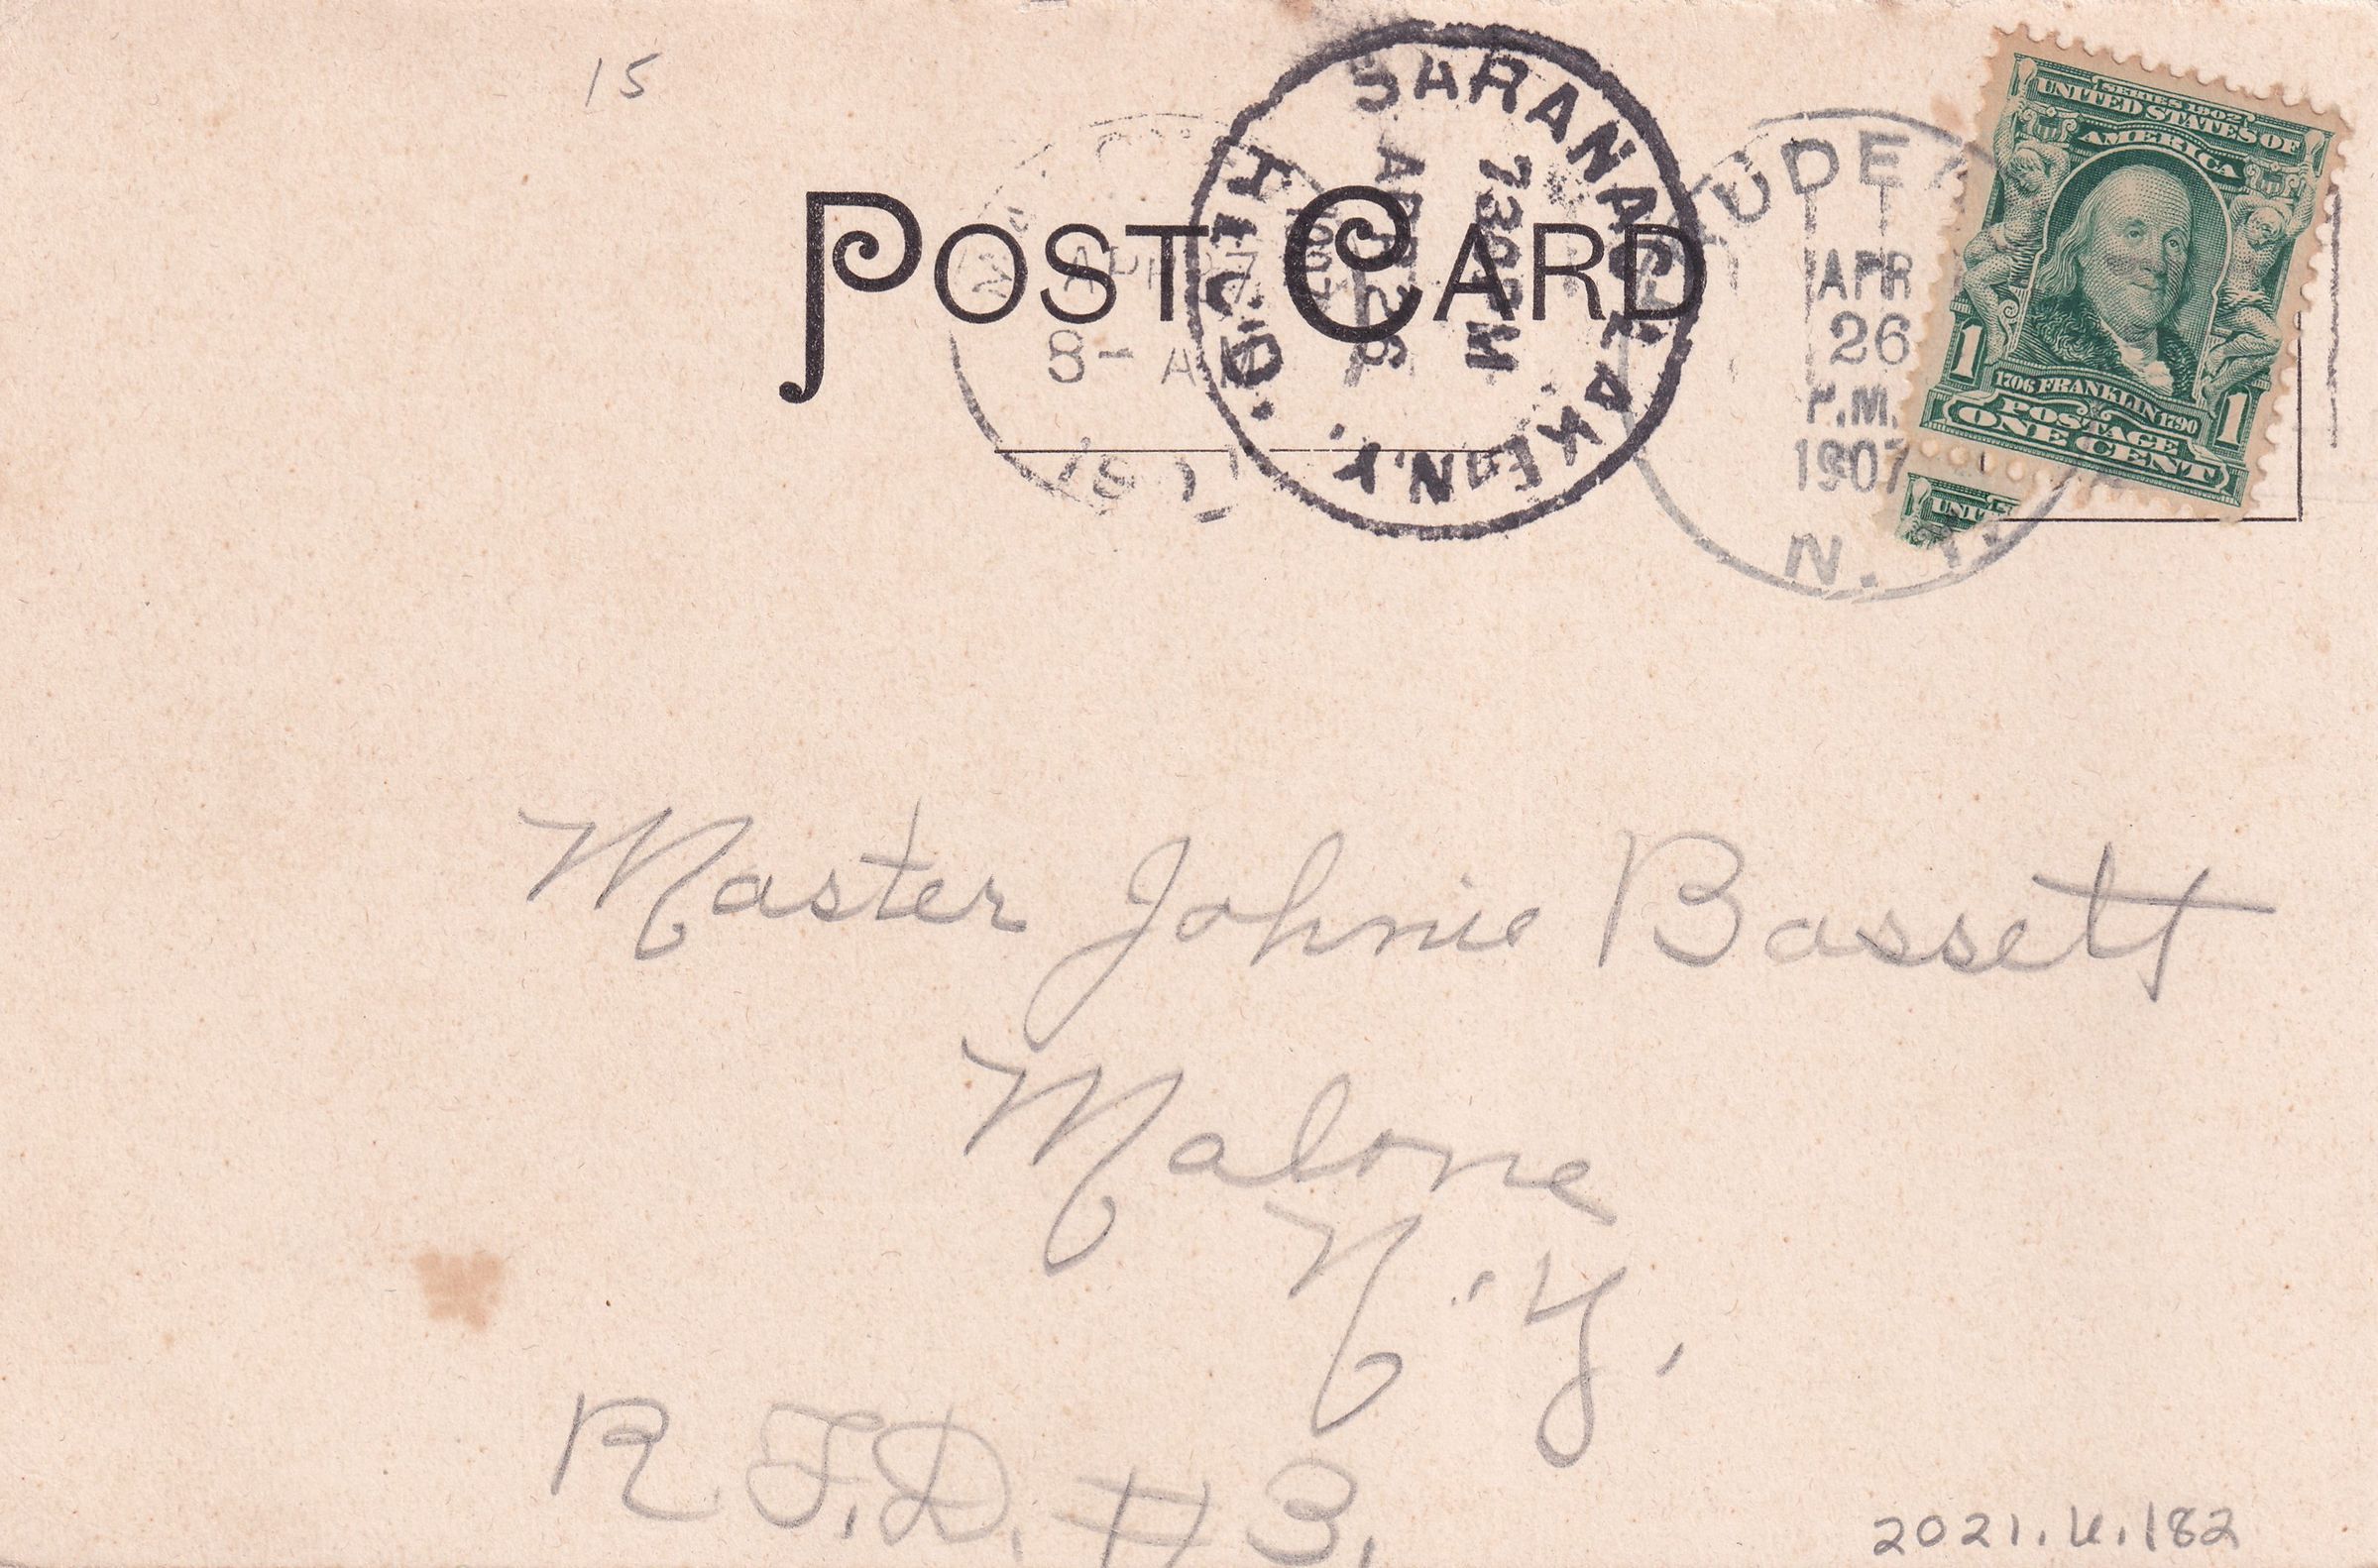 15
POST CARD
SARANAC LAKE N.Y.
APR 26
7 30 PM
1907
8- A
APR
26
P.M.
1907
N. Y.
SERIES 1902
UNITED STATES OF
AMERICA
1706 FRANKLIN 1790
POSTAGE
1 ONE CENT 1
UNITE
Master Johnie Bassett
Malone
N. Y.
R. F. D. # 3.
2021.4.182